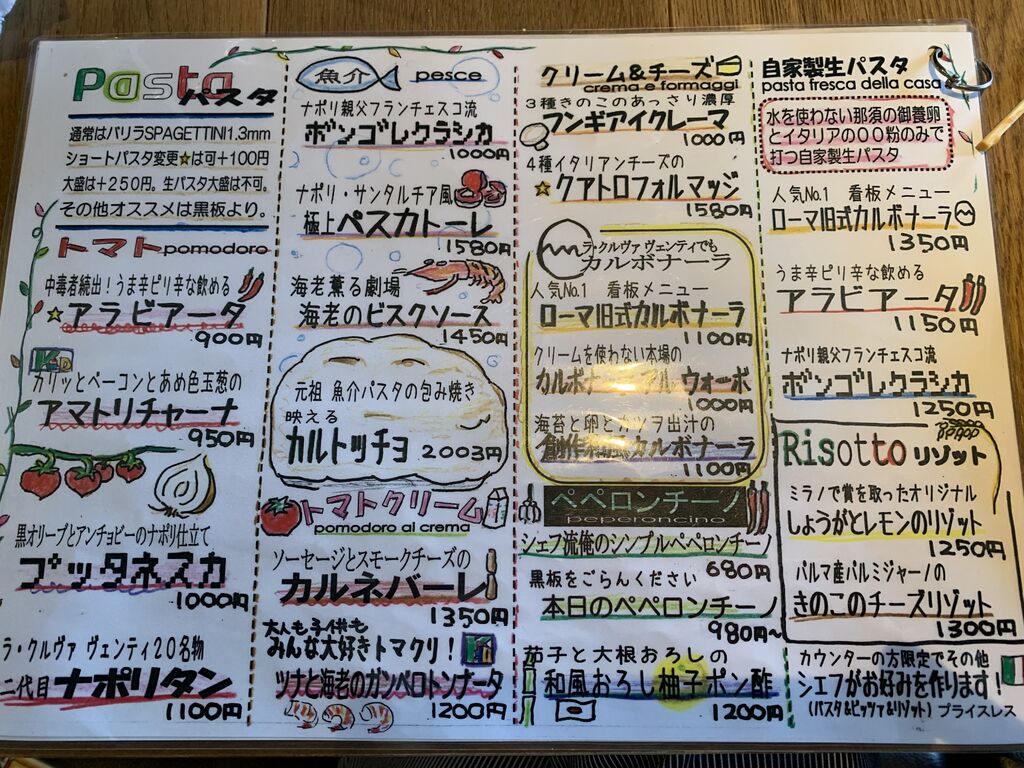 Pasta
パスタ
通常はバリラSPAGETTINI1.3mm
ショートパスタ変更☆は可+100円
大盛は+250円。生パスタ大盛は不可。
その他オススメは黒板より。
トマトpomodoro
中毒者続出！うま辛ピリ辛な飲める
☆アラビアータ
900円
カリッとベーコンとあめ色玉葱の
アマトリチャーナ
950円
黒オリーブとアンチョビーのナポリ仕立て
プッタネスカ
1000円
ラ・クルヴァ ヴェンティ20名物
二代目ナポリタン
1100円
魚介 pesce
ナポリ親父フランチェスコ流
ボンゴレクラシカ
1000円
ナポリ・サンタルチア風
極上ペスカトーレ
1580円
海老薫る劇場
海老のビスクソース
1450円
元祖 魚介パスタの包み焼き
映える
カルトッチョ 2003円
トマトクリーム
pomodoro al crema
ソーセージとスモークチーズの
カルネバーレ
1350円
大人も子供も
みんな大好きトマクリ！
ツナと海老のガンベロトンナータ
1200円
クリーム&チーズ
crema e formaggi
3種きのこのあっさり濃厚
フンギアイクレーマ
1000円
4種イタリアンチーズの
☆クアトロフォルマッジ
1580円
ラ・クルヴァ ヴェンティでも
カルボナーラ
人気No.1 看板メニュー
ローマ旧式カルボナーラ
1100円
クリームを使わない本場の
カルボナーラ アル・ウォーボ
1000円
海苔と卵とカツヲ出汁の
創作和風カルボナーラ
1100円
ペペロンチーノ
peperoncino
シェフ流俺のシンプルペペロンチーノ
680円
黒板をごらんください
本日のペペロンチーノ
980円~
茄子と大根おろしの
和風おろし柚子ポン酢
1200円
自家製生パスタ
pasta fresca della casa
水を使わない那須の御養卵
とイタリアの00粉のみで
打つ自家製生パスタ
人気No.1 看板メニュー
ローマ旧式カルボナーラ
1350円
うま辛ピリ辛な飲める
アラビアータ
1150円
ナポリ親父フランチェスコ流
ボンゴレクラシカ
1250円
Risottoリゾット
ミラノで賞を取ったオリジナル
しょうがとレモンのリゾット
1250円
パルマ産パルミジャーノの
きのこのチーズリゾット
1300円
カウンターの方限定でその他
シェフがお好みを作ります！
(パスタ&ピッツァ&リゾット) プライスレス